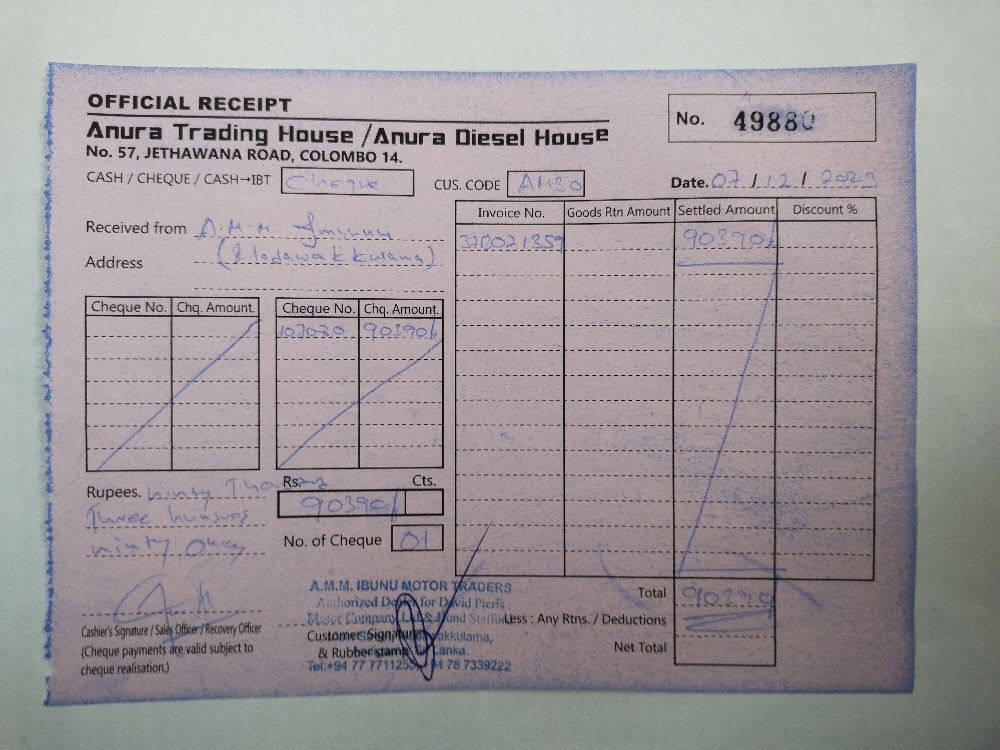 OFFICIAL RECEIPT
Anura Trading House / Anura Diesel House
No. 57, JETHAWANA ROAD, COLOMBO 14.
No. 49880
CASH / CHEQUE / CASH→IBT Cheque
CUS. CODE
Date. 07 / 12 /
Received from A.M.M.
Address
Invoice No. Goods Rtn Amount Settled Amount Discount %
90390/
Cheque No. Chq. Amount. Cheque No. Chq. Amount.
90390/
Rupees. Ninty Thousand
Three hundred
ninty Only
Rs. Cts.
90390/
No. of Cheque 01
Total 90390
Less : Any Rtns. / Deductions
Net Total
Cashier's Signature / Sales Officer / Recovery Officer
(Cheque payments are valid subject to
cheque realisation.)
A.M.M. IBUNU MOTOR TRADERS
Authorized for David Pieris
Motor Company
Customer Signature
& Rubber stamp
Tel:+94 77 78 7339222